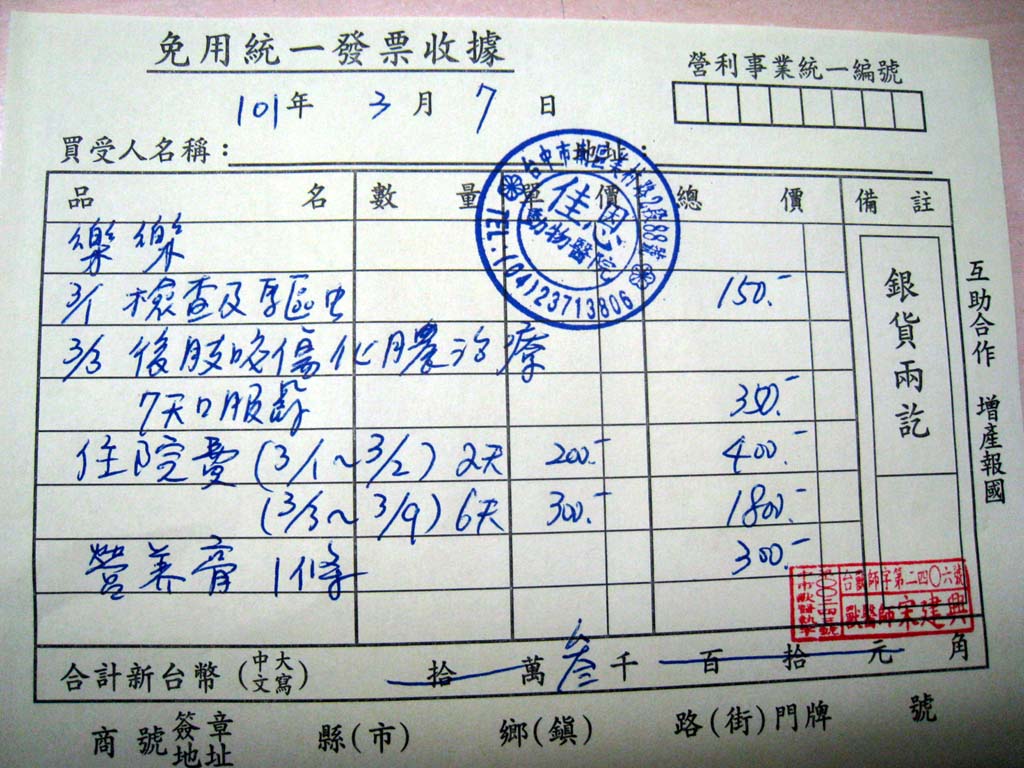 免用統一發票收據
營利事業統一編號
101年 3月 7日
買受人名稱：
品名 數量 單價 總價 備註
台中市南區 路2段88號
佳恩
動物醫院
TEL:(04)23713806
樂樂
3/1 檢查及驅虫 150.-
3/3 後肢咬傷化膿治療
7天口服 350.-
住院費 (3/1~3/2) 2天 200.- 400.-
(3/3~3/9) 6天 300.- 1800.-
營養膏 1條 300.-
銀貨兩訖
互助合作 增產報國
台獸師字第二四〇六號
獸醫師宋建興
合計新台幣(中文大寫) 拾 萬 叁 千 百 拾 元 角
商號簽章地址 縣(市) 鄉(鎮) 路(街)門牌 號